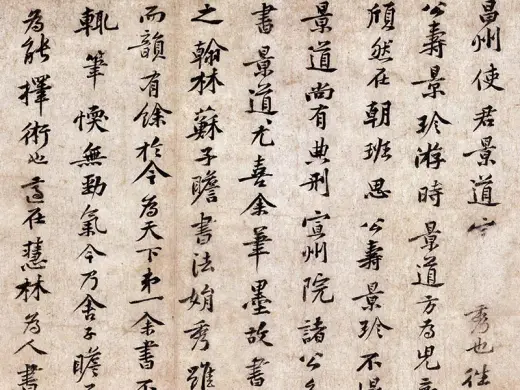 昌州使君景道宗秀也往
公壽景珍游時景道方為兒
頎然在朝班思公壽景珍不得
景道尚有典刑宣州院諸公多
書景道尤喜余筆墨故書
之翰林蘇子瞻書法娟秀雖
而韻有餘於今為天下第一余書不
輒筆愞無勁氣今乃舍子瞻
為能擇術也適在慧林為人書